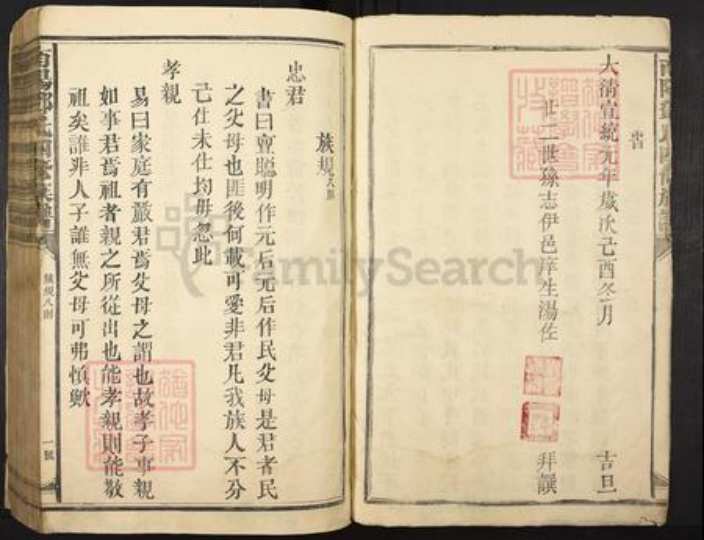 大淸宣統元年歲次己酉冬月 吉旦
廿二世孫志伊邑庠生湯佐 拜譔
族規八則
忠君
書曰亶聰明作元后元后作民父母是君者民
之父母也匪後何載可愛非君凡我族人不分
己仕未仕均毋忽此
孝親
易曰家庭有嚴君焉父母之謂也故孝子事親
如事君焉祖者親之所從出也能孝親則能敬
祖矣誰非人子誰無父母可弗愼歟
族規八則
一號
FamilySearch